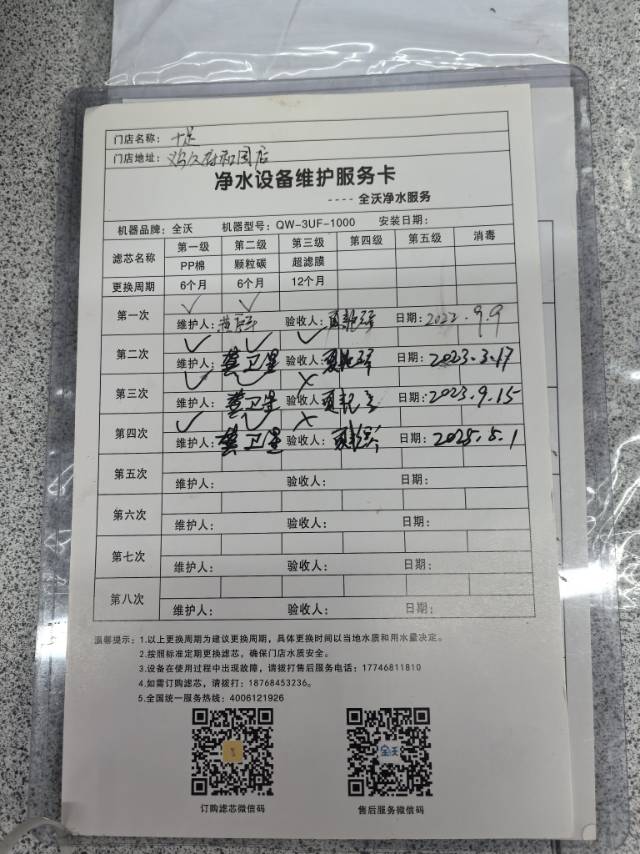 门店名称：十足
门店地址：
净水设备维护服务卡
---- 全沃净水服务
机器品牌：全沃 机器型号：QW-3UF-1000 安装日期：
滤芯名称 第一级 第二级 第三级 第四级 第五级 消毒
PP棉 颗粒碳 超滤膜
更换周期 6个月 6个月 12个月
第一次 ✓ ✓
维护人： 验收人： 日期：2022.9.9
第二次 ✓ ✓ ✓
维护人：龚卫星 验收人： 日期：2023.3.17
第三次 ✓ ✓ ×
维护人：龚卫星 验收人： 日期：2023.9.15
第四次 ✓ ✓ ×
维护人：龚卫星 验收人： 日期：2025.5.1
第五次
维护人： 验收人： 日期：
第六次
维护人： 验收人： 日期：
第七次
维护人： 验收人： 日期：
第八次
维护人： 验收人： 日期：
温馨提示：1.以上更换周期为建议更换周期，具体更换时间以当地水质和用水量决定。
2.按照标准定期更换滤芯，确保门店水质安全。
3.设备在使用过程中出现故障，请拨打售后服务电话：17746811810
4.如需订购滤芯，请拨打：18768453236。
5.全国统一服务热线：4006121926
全沃
订购滤芯微信码 售后服务微信码